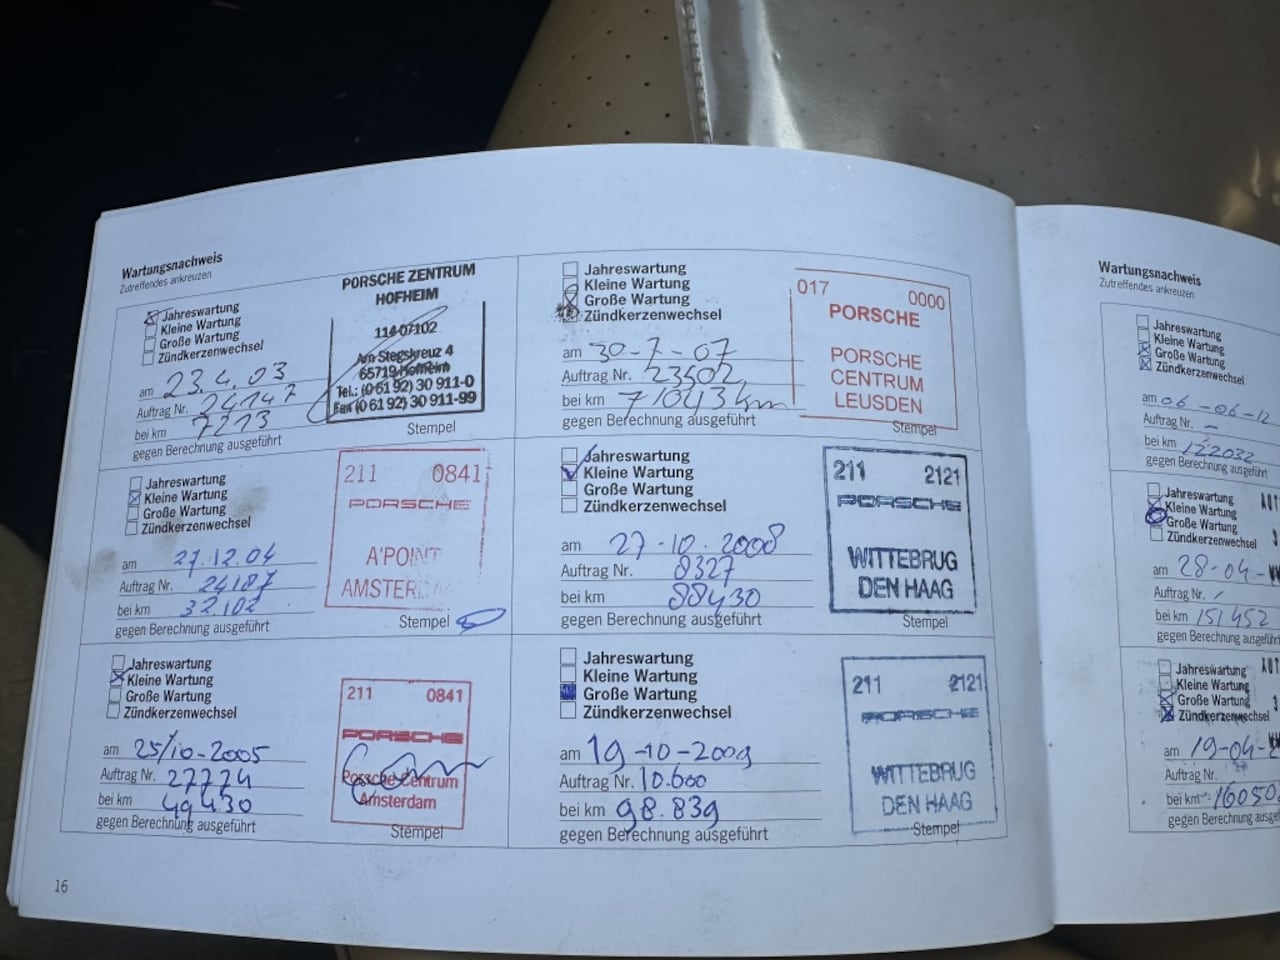 Wartungsnachweis
Zutreffendes ankreuzen
Jahreswartung
Kleine Wartung
Große Wartung
Zündkerzenwechsel
am 23.4.03
Auftrag Nr. 24147
bei km 7213
gegen Berechnung ausgeführt
PORSCHE ZENTRUM
HOFHEIM
114-07102
Am Stegskreuz 4
65719 Hofheim
Tel.: (0 61 92) 30 911-0
Fax (0 61 92) 30 911-99
Stempel
Jahreswartung
Kleine Wartung
Große Wartung
Zündkerzenwechsel
am 27.12.04
Auftrag Nr. 24187
bei km 32102
gegen Berechnung ausgeführt
211 0841
PORSCHE
A'POINT
Stempel
Jahreswartung
Kleine Wartung
Große Wartung
Zündkerzenwechsel
am 25/10-2005
Auftrag Nr. 27774
bei km 49430
gegen Berechnung ausgeführt
211 0841
PORSCHE
Porsche Zentrum
Amsterdam
Stempel
16
Jahreswartung
Kleine Wartung
Große Wartung
Zündkerzenwechsel
am 30-7-07
Auftrag Nr. 23502
bei km 71043 km
gegen Berechnung ausgeführt
017 0000
PORSCHE
PORSCHE
CENTRUM
LEUSDEN
Stempel
Jahreswartung
Kleine Wartung
Große Wartung
Zündkerzenwechsel
am 27-10.2008
Auftrag Nr. 8327
bei km 88430
gegen Berechnung ausgeführt
211 2121
PORSCHE
WITTEBRUG
DEN HAAG
Stempel
Jahreswartung
Kleine Wartung
Große Wartung
Zündkerzenwechsel
am 19-10-2009
Auftrag Nr. 10.600
bei km 98.839
gegen Berechnung ausgeführt
211 2121
PORSCHE
WITTEBRUG
DEN HAAG
Stempel
Wartungsnachweis
Zutreffendes ankreuzen
Jahreswartung
Kleine Wartung
Große Wartung
Zündkerzenwechsel
am 06-06-12
Auftrag Nr. -
bei km 122032
gegen Berechnung ausgeführt
Jahreswartung
Kleine Wartung
Große Wartung
Zündkerzenwechsel
am 28-04-
Auftrag Nr. /
bei km 151452
gegen Berechnung
Jahreswartung
Kleine Wartung
Große Wartung
Zündkerzenwechsel
am 19-04-
Auftrag Nr.
bei km
gegen Berechnung